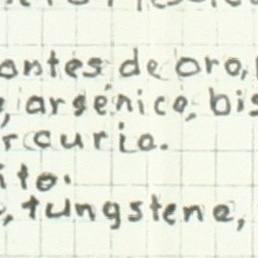 antes de oro,
, arsénico, bis
rcurio.
ito.
, tungstene,